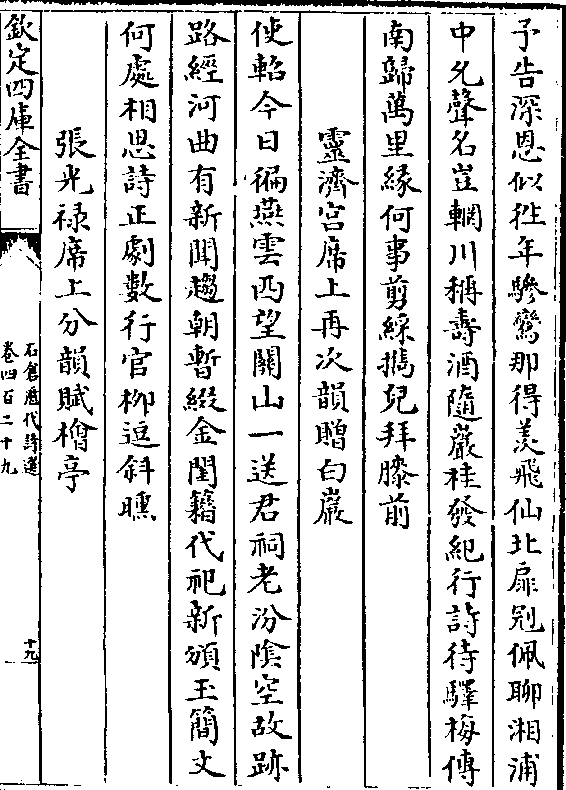 予告深恩似徃年驂鸞那得羨飛仙北扉冠佩聊湘浦
中允聲名豈輞川稱壽酒隨巖桂發紀行詩待驛梅傳
南歸萬里緣何事剪綵攜兒拜膝前
靈濟宫席上再次韻贈白巖
使軺今日徧燕雲西望關山一送君祠老汾隂空故跡
路經河曲有新聞趨朝暫綴金閨籍代祀新頒玉簡文
何處相思詩正劇數行官栁逗斜曛
張光禄席上分韻賦檜亭
欽定四庫全書
石倉歴代詩選
卷四百二十九
十九